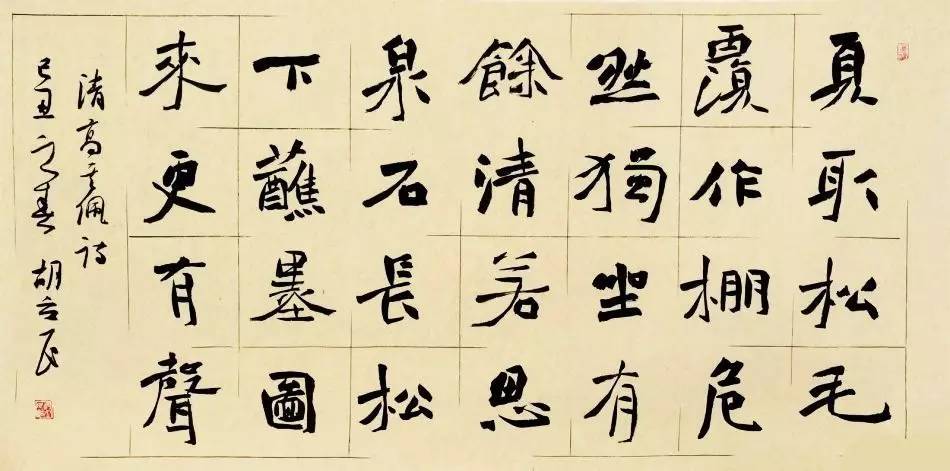 夏取松毛
覆作棚危
然獨坐有
餘清若思
泉石長松
下蘸墨圖
來更有聲
清高其佩詩
己丑之春 胡 民